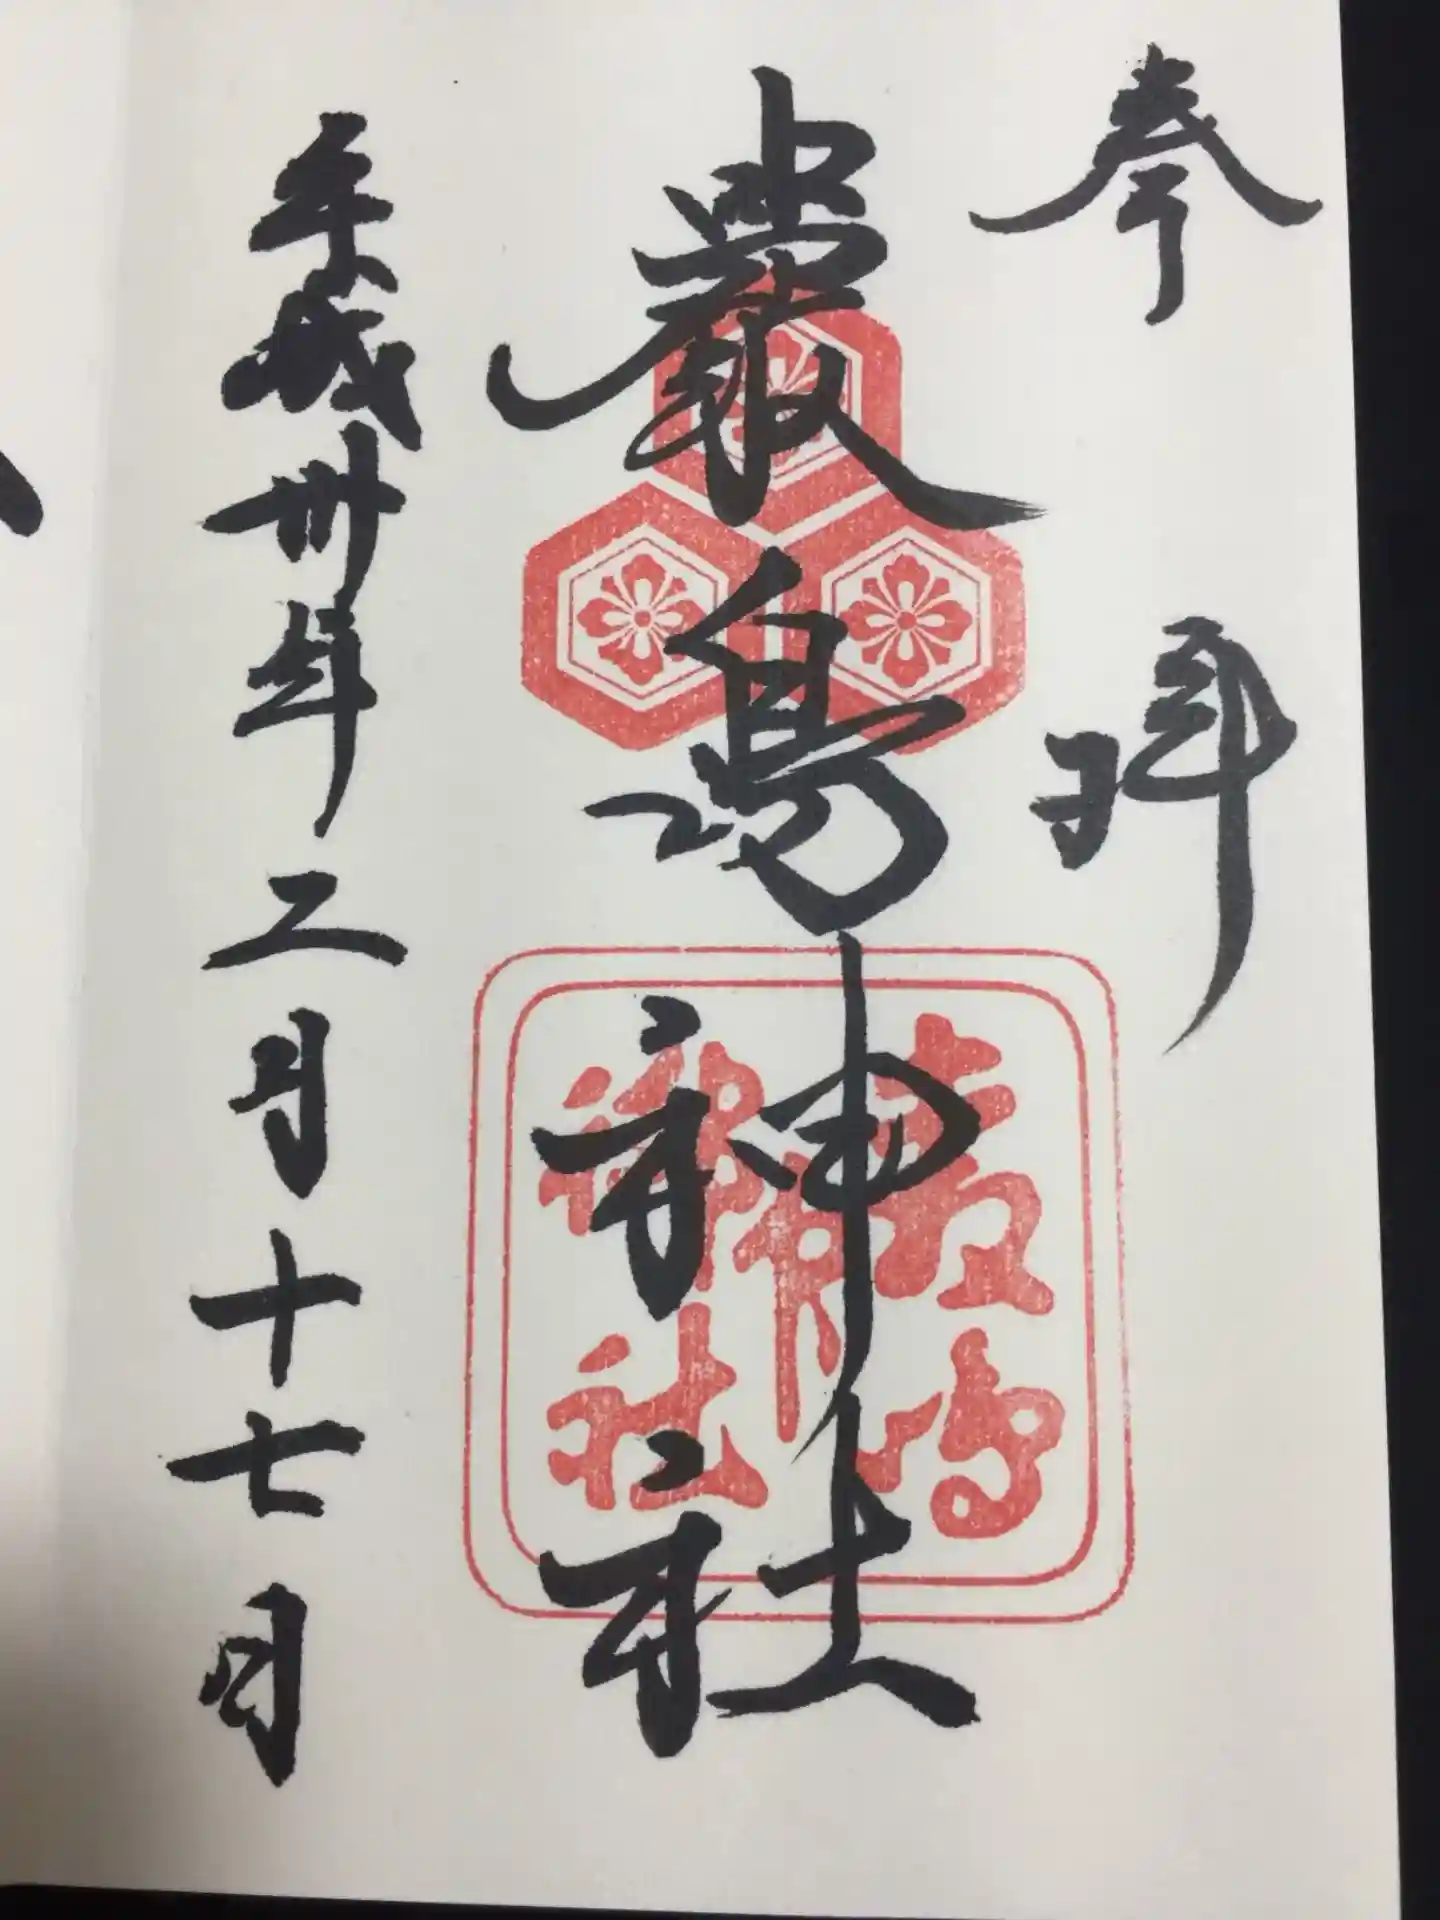 奉拝
嚴島神社
平成卅年二月十七日
嚴島
神社